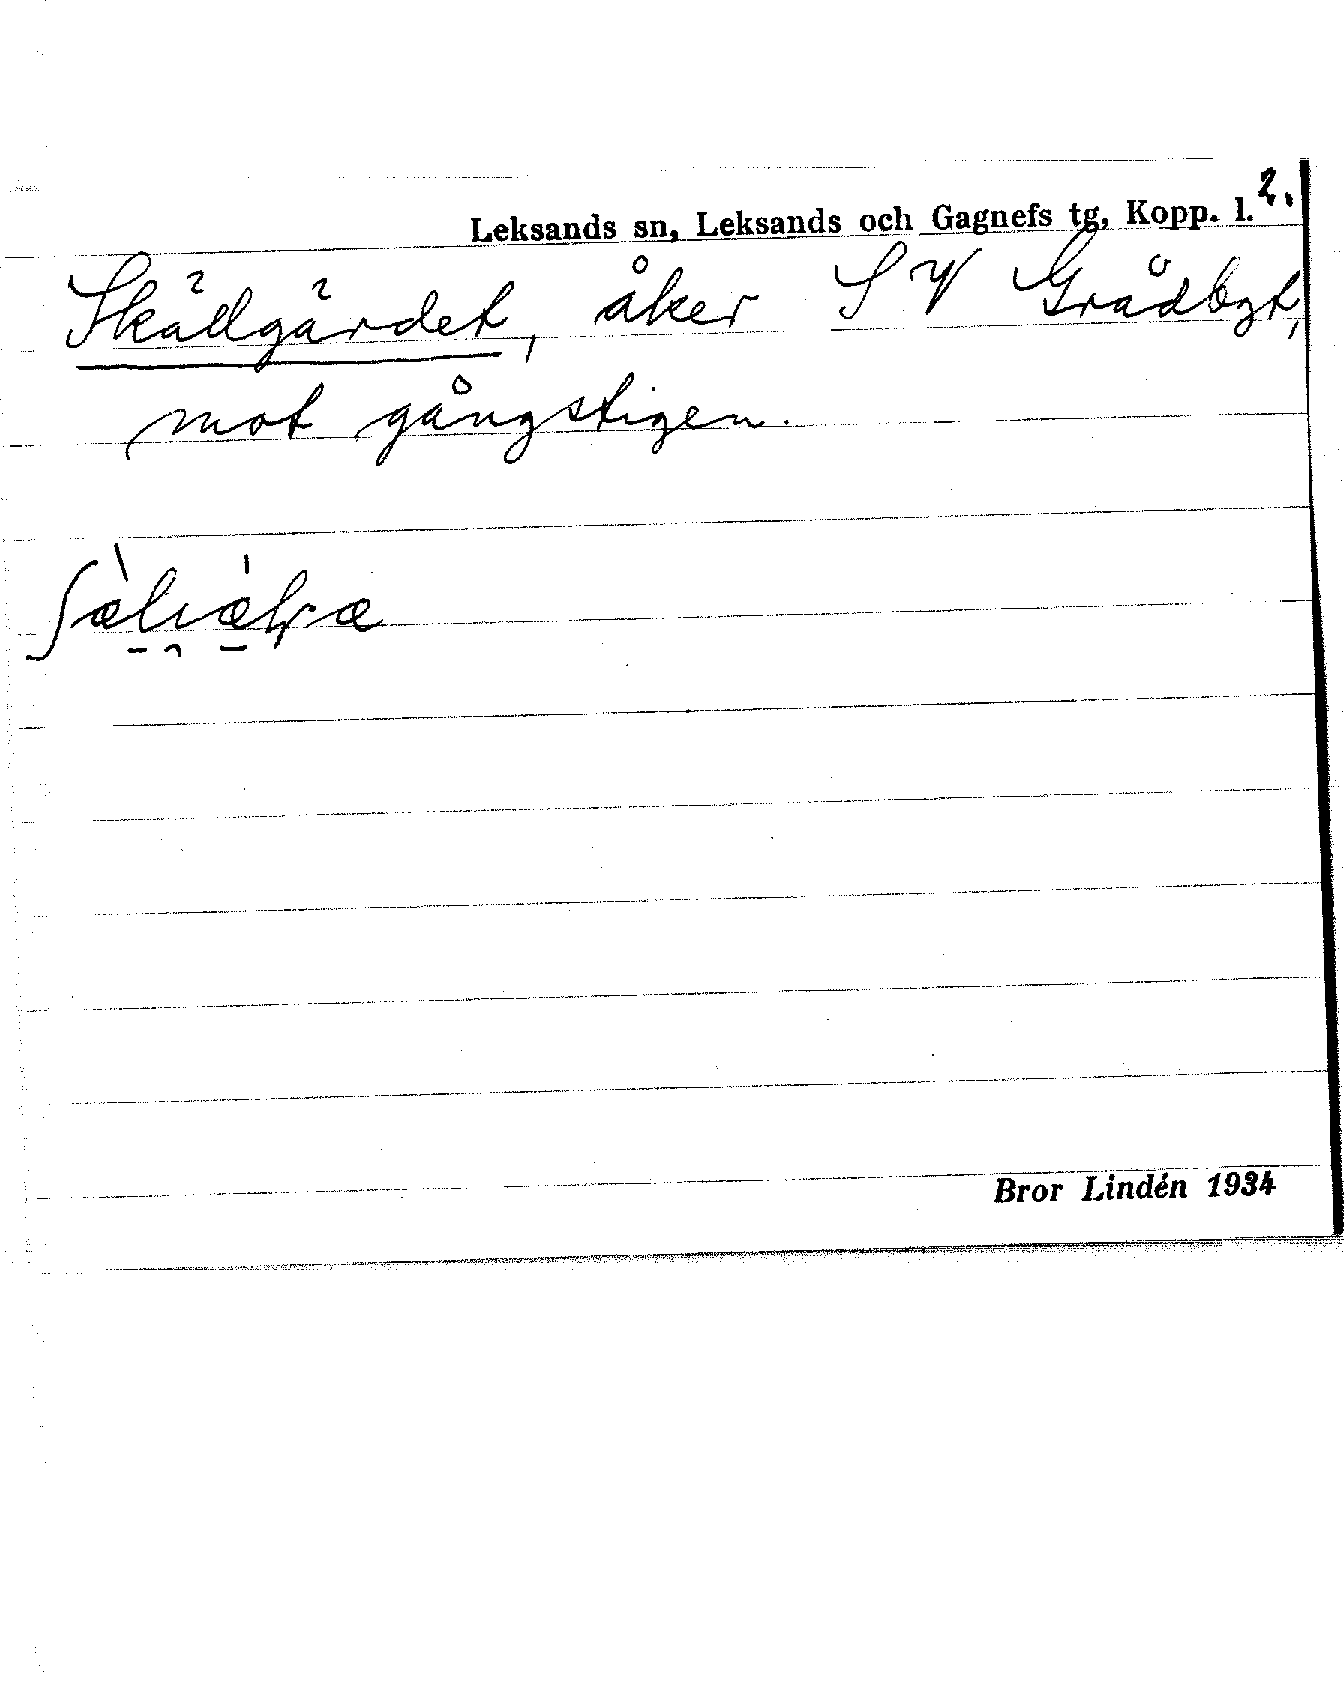 Leksands sn, Leksands och Gagnefs tg, Kopp. l. 2.
Skällgärdet, åker S V Grådbyt,
mot gångstigen.
Bror Lindén 1934